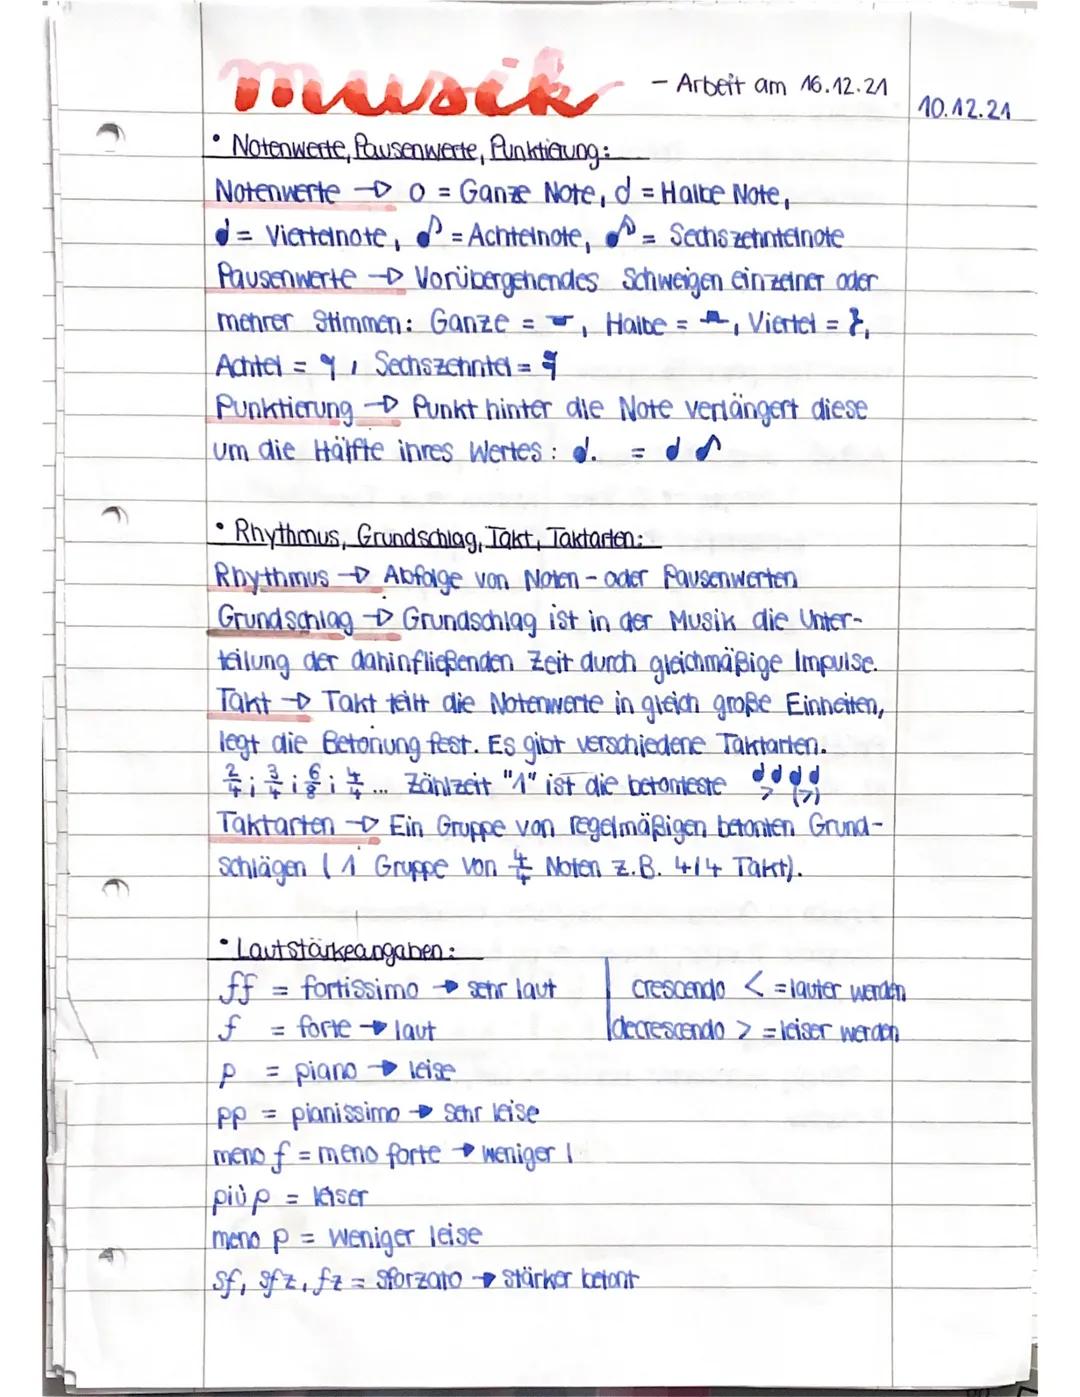 musik – Arbeit am 16.12.21
10.12.21
• Notenwerte, Pausenwerte, Punktierung:
Notenwerte → o = Ganze Note, d = Halbe Note,
d = Viertelnote, ♪ = Achtelnote, = Sechszehntelnote
Pausenwerte → Vorübergehendes Schweigen einzelner oder
mehrer Stimmen: Ganze = , Halbe = , Viertel = ,
Achtel = , Sechszehntel =
Punktierung → Punkt hinter die Note verlängert diese
um die Hälfte ihres Wertes: d. = d ♪
• Rhythmus, Grundschlag, Takt, Taktarten:
Rhythmus → Abfolge von Noten- oder Pausenwerten
Grundschlag → Grundschlag ist in der Musik die Unter-
teilung der dahinfließenden Zeit durch gleichmäßige Impulse.
Takt → Takt teilt die Notenwerte in gleich große Einheiten,
legt die Betonung fest. Es gibt verschiedene Taktarten.
2/4; 3/4; 6/8; 4/4 ... Zählzeit "1" ist die betonteste d d d d
> (>)
Taktarten → Ein Gruppe von regelmäßigen betonten Grund-
schlägen (1 Gruppe von 4/4 Noten z.B. 4/4 Takt).
• Lautstärkeangaben:
ff = fortissimo → sehr laut
f = forte → laut
p = piano → leise
pp = pianissimo → sehr leise
meno f = meno forte → weniger l
più p = leiser
meno p = weniger leise
sf, sfz, fz = sforzato → stärker betont
crescendo < = lauter werden
decrescendo > = leiser werden